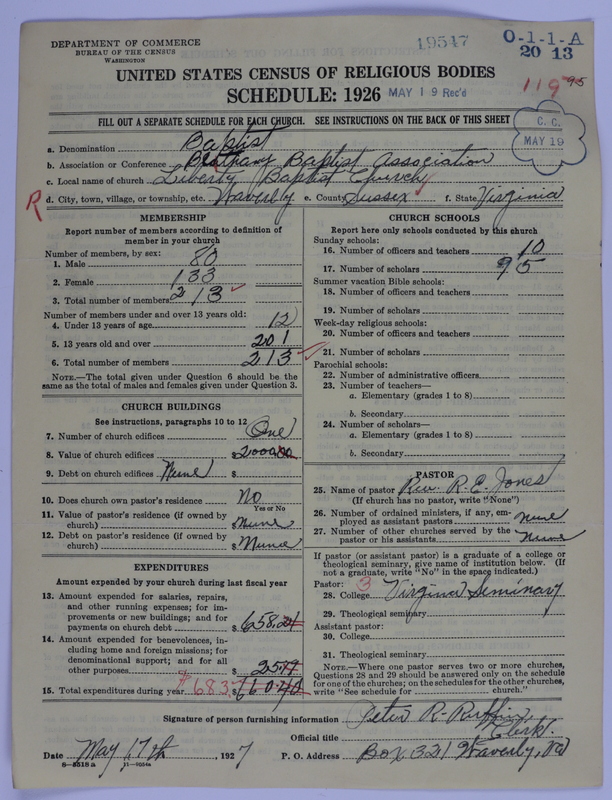 DEPARTMENT OF COMMERCE
BUREAU OF THE CENSUS
WASHINGTON
19547
O-1-1-A
20 13
UNITED STATES CENSUS OF RELIGIOUS BODIES
SCHEDULE: 1926
MAY 19 Rec'd
119 95
FILL OUT A SEPARATE SCHEDULE FOR EACH CHURCH. SEE INSTRUCTIONS ON THE BACK OF THIS SHEET
C. C.
MAY 19
a. Denomination Baptist
b. Association or Conference Bethany Baptist Association
c. Local name of church Liberty Baptist Church
R d. City, town, village, or township, etc. Waverly e. County Sussex f. State Virginia
MEMBERSHIP
Report number of members according to definition of
member in your church
Number of members, by sex:
1. Male 80
2. Female 133
3. Total number of members 213
Number of members under and over 13 years old:
4. Under 13 years of age 12
5. 13 years old and over 201
6. Total number of members 213
NOTE.—The total given under Question 6 should be the
same as the total of males and females given under Question 3.
CHURCH BUILDINGS
See instructions, paragraphs 10 to 12
7. Number of church edifices One
8. Value of church edifices $2000.00
9. Debt on church edifices None $
10. Does church own pastor's residence No
Yes or No
11. Value of pastor's residence (if owned by
church) $ None
12. Debt on pastor's residence (if owned by
church) $ None
EXPENDITURES
Amount expended by your church during last fiscal year
13. Amount expended for salaries, repairs,
and other running expenses; for im-
provements or new buildings; and for
payments on church debt $ 658.21
14. Amount expended for benevolences, in-
cluding home and foreign missions; for
denominational support; and for all
other purposes $
15. Total expenditures during year 683 $
CHURCH SCHOOLS
Report here only schools conducted by this church
Sunday schools:
16. Number of officers and teachers 10
17. Number of scholars 95
Summer vacation Bible schools:
18. Number of officers and teachers
19. Number of scholars
Week-day religious schools:
20. Number of officers and teachers
21. Number of scholars
Parochial schools:
22. Number of administrative officers
23. Number of teachers—
a. Elementary (grades 1 to 8)
b. Secondary
24. Number of scholars—
a. Elementary (grades 1 to 8)
b. Secondary
PASTOR
25. Name of pastor Rev. R. E. Jones
(If church has no pastor, write "None")
26. Number of ordained ministers, if any, em-
ployed as assistant pastors None
27. Number of other churches served by the
pastor or his assistants None
If pastor (or assistant pastor) is a graduate of a college or
theological seminary, give name of institution below. (If
not a graduate, write "No" in the space indicated.)
Pastor: 3
28. College Virginia Seminary
29. Theological seminary
Assistant pastor:
30. College
31. Theological seminary
NOTE.—Where one pastor serves two or more churches,
Questions 28 and 29 should be answered only on the schedule
for one of the churches; on the schedules for the other churches,
write "See schedule for church."
Signature of person furnishing information Peter R. Ruffin
Official title Clerk.
Date May 17th, 1927 P. O. Address Box 321 Waverly, Va